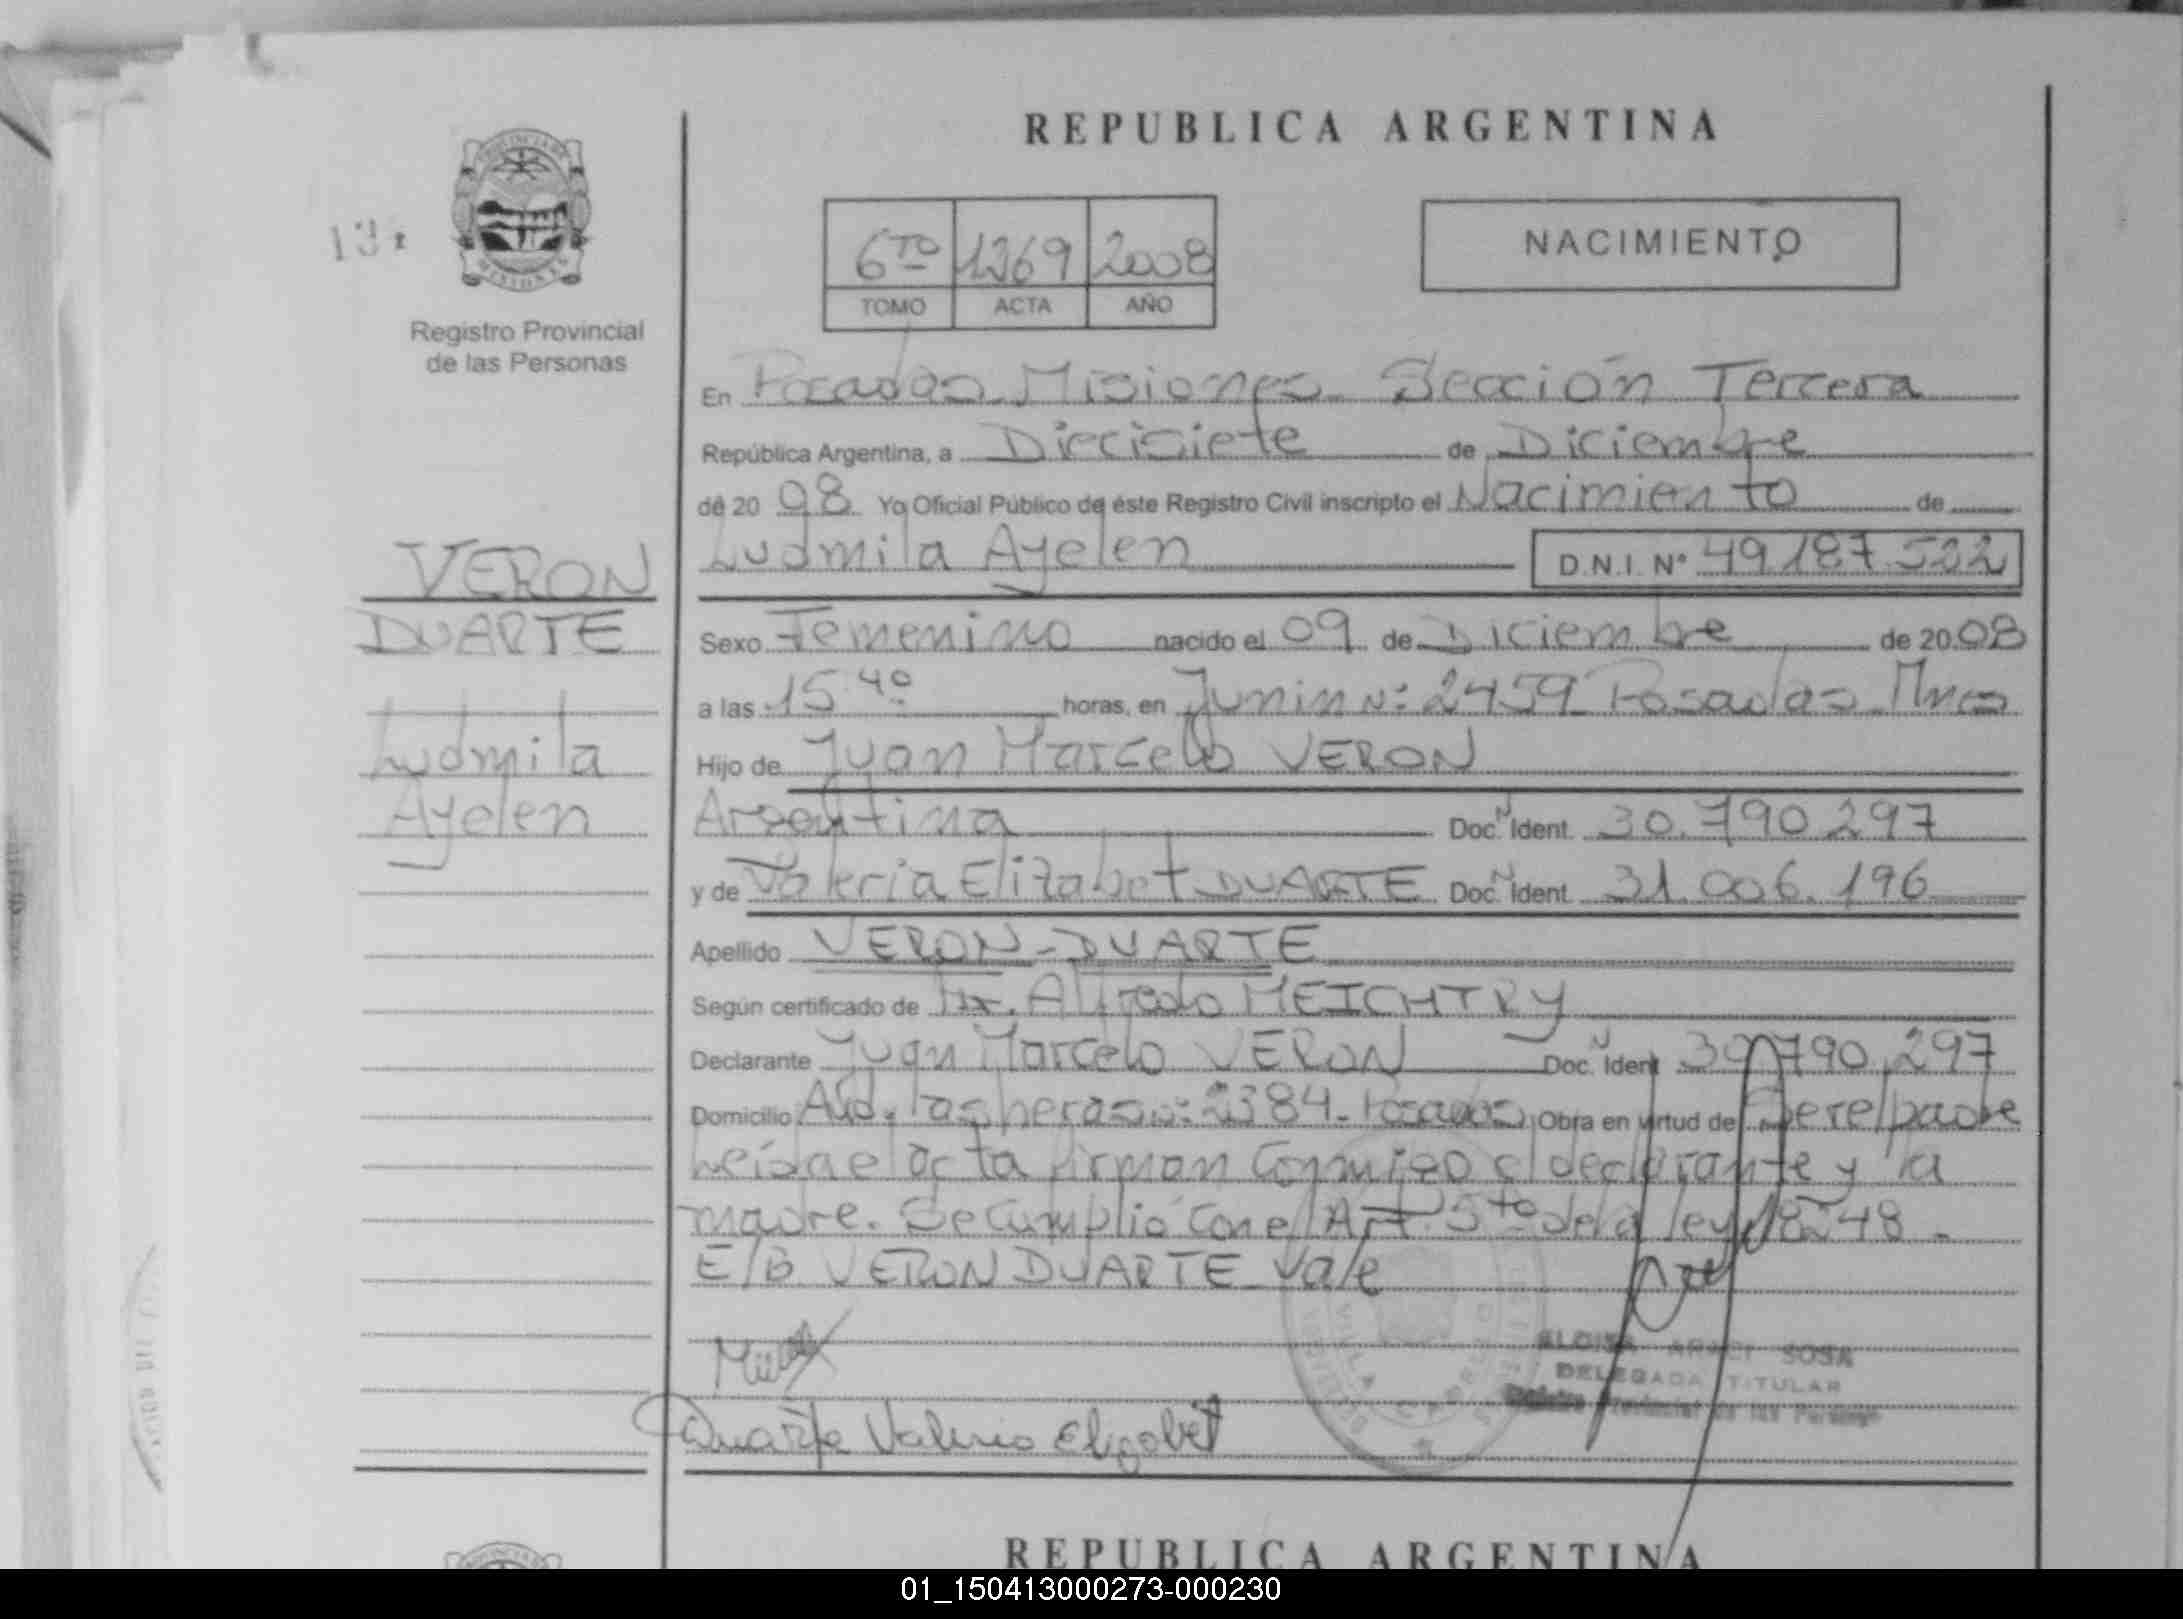 REPUBLICA ARGENTINA
PROVINCIA DE
MISIONES
Registro Provincial
de las Personas
6TO 1269 2008
TOMO ACTA AÑO
NACIMIENTO
En Posadas Misiones Sección Tercera
República Argentina, a Diecisiete de Diciembre
de 20 08 Yo Oficial Público de éste Registro Civil inscripto el Nacimiento de
Ludmila Ayelen D.N.I. Nº 49.187.522
VERON
DUARTE
Ludmila
Ayelen
Sexo Femenino nacido el 09 de Diciembre de 20 08
a las 15.40 horas, en Junin Nº: 2459 Posadas Mnes
Hijo de Juan Marcelo VERON
Argentina Doc. N Ident. 30.790.297
y de Valeria Elizabet DUARTE Doc. N Ident. 31.006.196
Apellido VERON-DUARTE
Según certificado de Dr. Alfredo MEICHTRY
Declarante Juan Marcelo VERON Doc. N Ident 30.790.297
Domicilio Avd. las heras Nº: 2384 Posadas Obra en virtud de Ser el padre
Leida el acta firman conmigo el declarante y la
madre. Se cumplió con el Art. 5to de la ley 18248.
E/B VERON DUARTE Vale
Duarte Valeria Elizabet
ELOISA ARACI SOSA
DELEGADA TITULAR
Registro Provincial de las Personas
VILLA CABELLO
REPUBLICA ARGENTINA
01_150413000273-000230